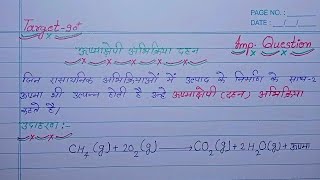 PAGE NO. :
DATE : / /
Target-90+
Imp. Question
ऊष्माक्षेपी अभिक्रिया दहन
जिन रासायनिक अभिक्रियाओं में उत्पाद के निर्माण के साथ-2
ऊष्मा भी उत्पन्न होती है उन्हें ऊष्माक्षेपी (दहन) अभिक्रिया
कहते हैं।
उदाहरण:-
CH₄(g) + 2O₂(g) → CO₂(g) + 2H₂O(g) + ऊष्मा